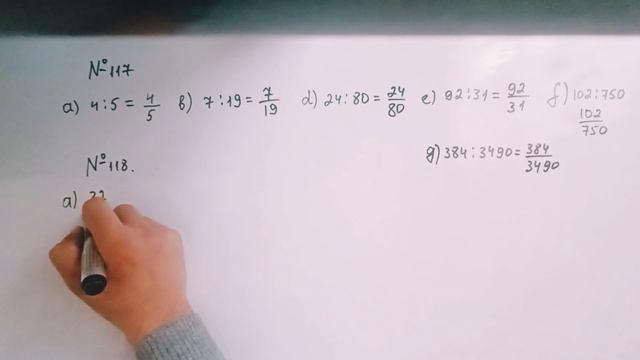 №117
a) 4:5 = 4/5 b) 7:19 = 7/19 d) 24:80 = 24/80 e) 92:31 = 92/31 f) 102:750 102/750
g) 384:3490 = 384/3490
№118.
a)